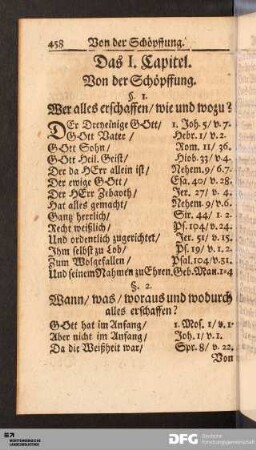 458 Von der Schöpffung.
Das I. Capitel.
Von der Schöpffung.
§. 1.
Wer alles erschaffen/ wie und wozu?
DEr Dreyeinige GOtt/ 1. Joh. 5/ v. 7.
GOtt Vater/ Hebr. 1/ v. 2.
GOtt Sohn/ Rom. 11/ 36.
GOtt Heil. Geist/ Hiob. 33/ v. 4.
Der da HErr allein ist/ Nehem. 9/ 6.7.
Der ewige GOtt/ Esa. 40/ v. 28.
Der HErr Zebaoth/ Jer. 27/ v. 4.
Hat alles gemacht/ Nehem. 9/ v. 6.
Gantz herrlich/ Sir. 44/ 1. 2.
Recht weißlich/ Ps. 104/ v. 24.
Und ordentlich zugerichtet/ Jer. 51/ v. 15.
Ihm selbst zu Lob/ Ps. 19/ v. 2.
Zum Wolgefallen/ Psal. 104/ v. 31.
Und seinem Nahmen zu Ehren. Geb. Man. 1.4
§. 2.
Wann/ was/ woraus und wodurch
alles erschaffen?
GOtt hat im Anfang/ 1. Mos. 1/ v. 1.
Aber nicht im Anfang/ Joh. 1/ v. 1.
Da die Weißheit war/ Spr. 8/ v. 22.
Von
DFG